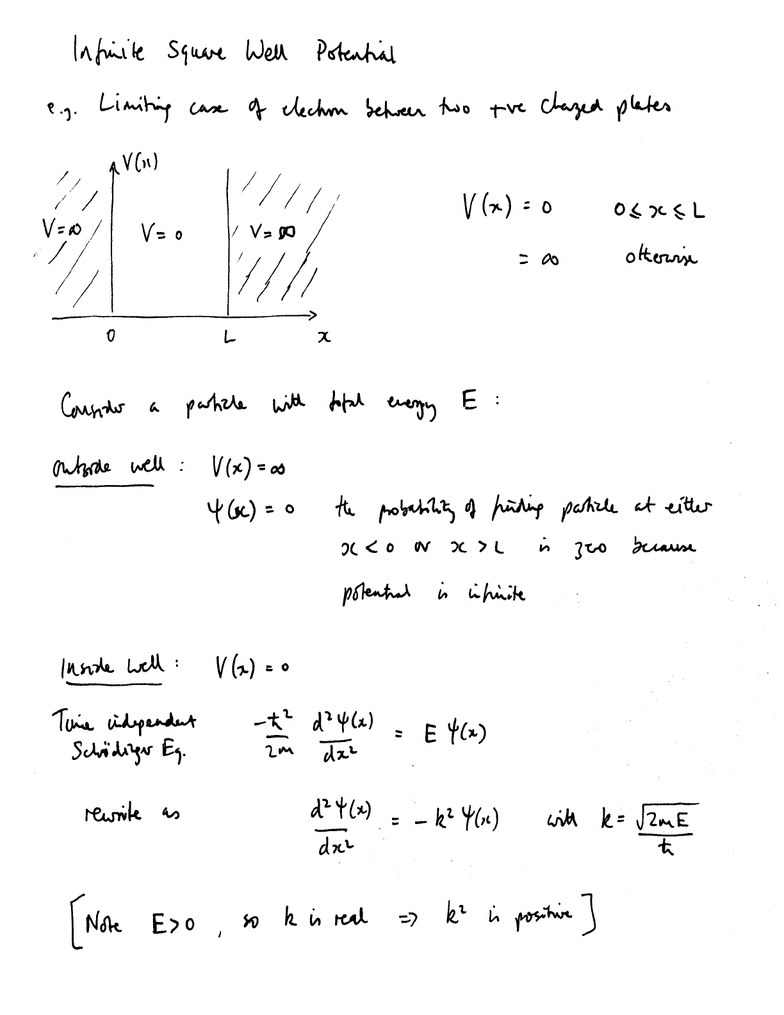 Infinite Square Well Potential
e.g. Limiting case of electron between two +ve charged plates
V(x)
V=∞ V=0 V=∞
0 L x
V(x) = 0 0≤x≤L
= ∞ otherwise
Consider a particle with total energy E :
outside well : V(x)=∞
Ψ(x) = 0 the probability of finding particle at either
x<0 or x>L is zero because
potential is infinite
Inside well : V(x) = 0
Time independent -ħ²/2m d²Ψ(x)/dx² = E Ψ(x)
Schrödinger Eq.
rewrite as d²Ψ(x)/dx² = -k² Ψ(x) with k = √2mE/ħ
[Note E>0, so k is real => k² is positive]